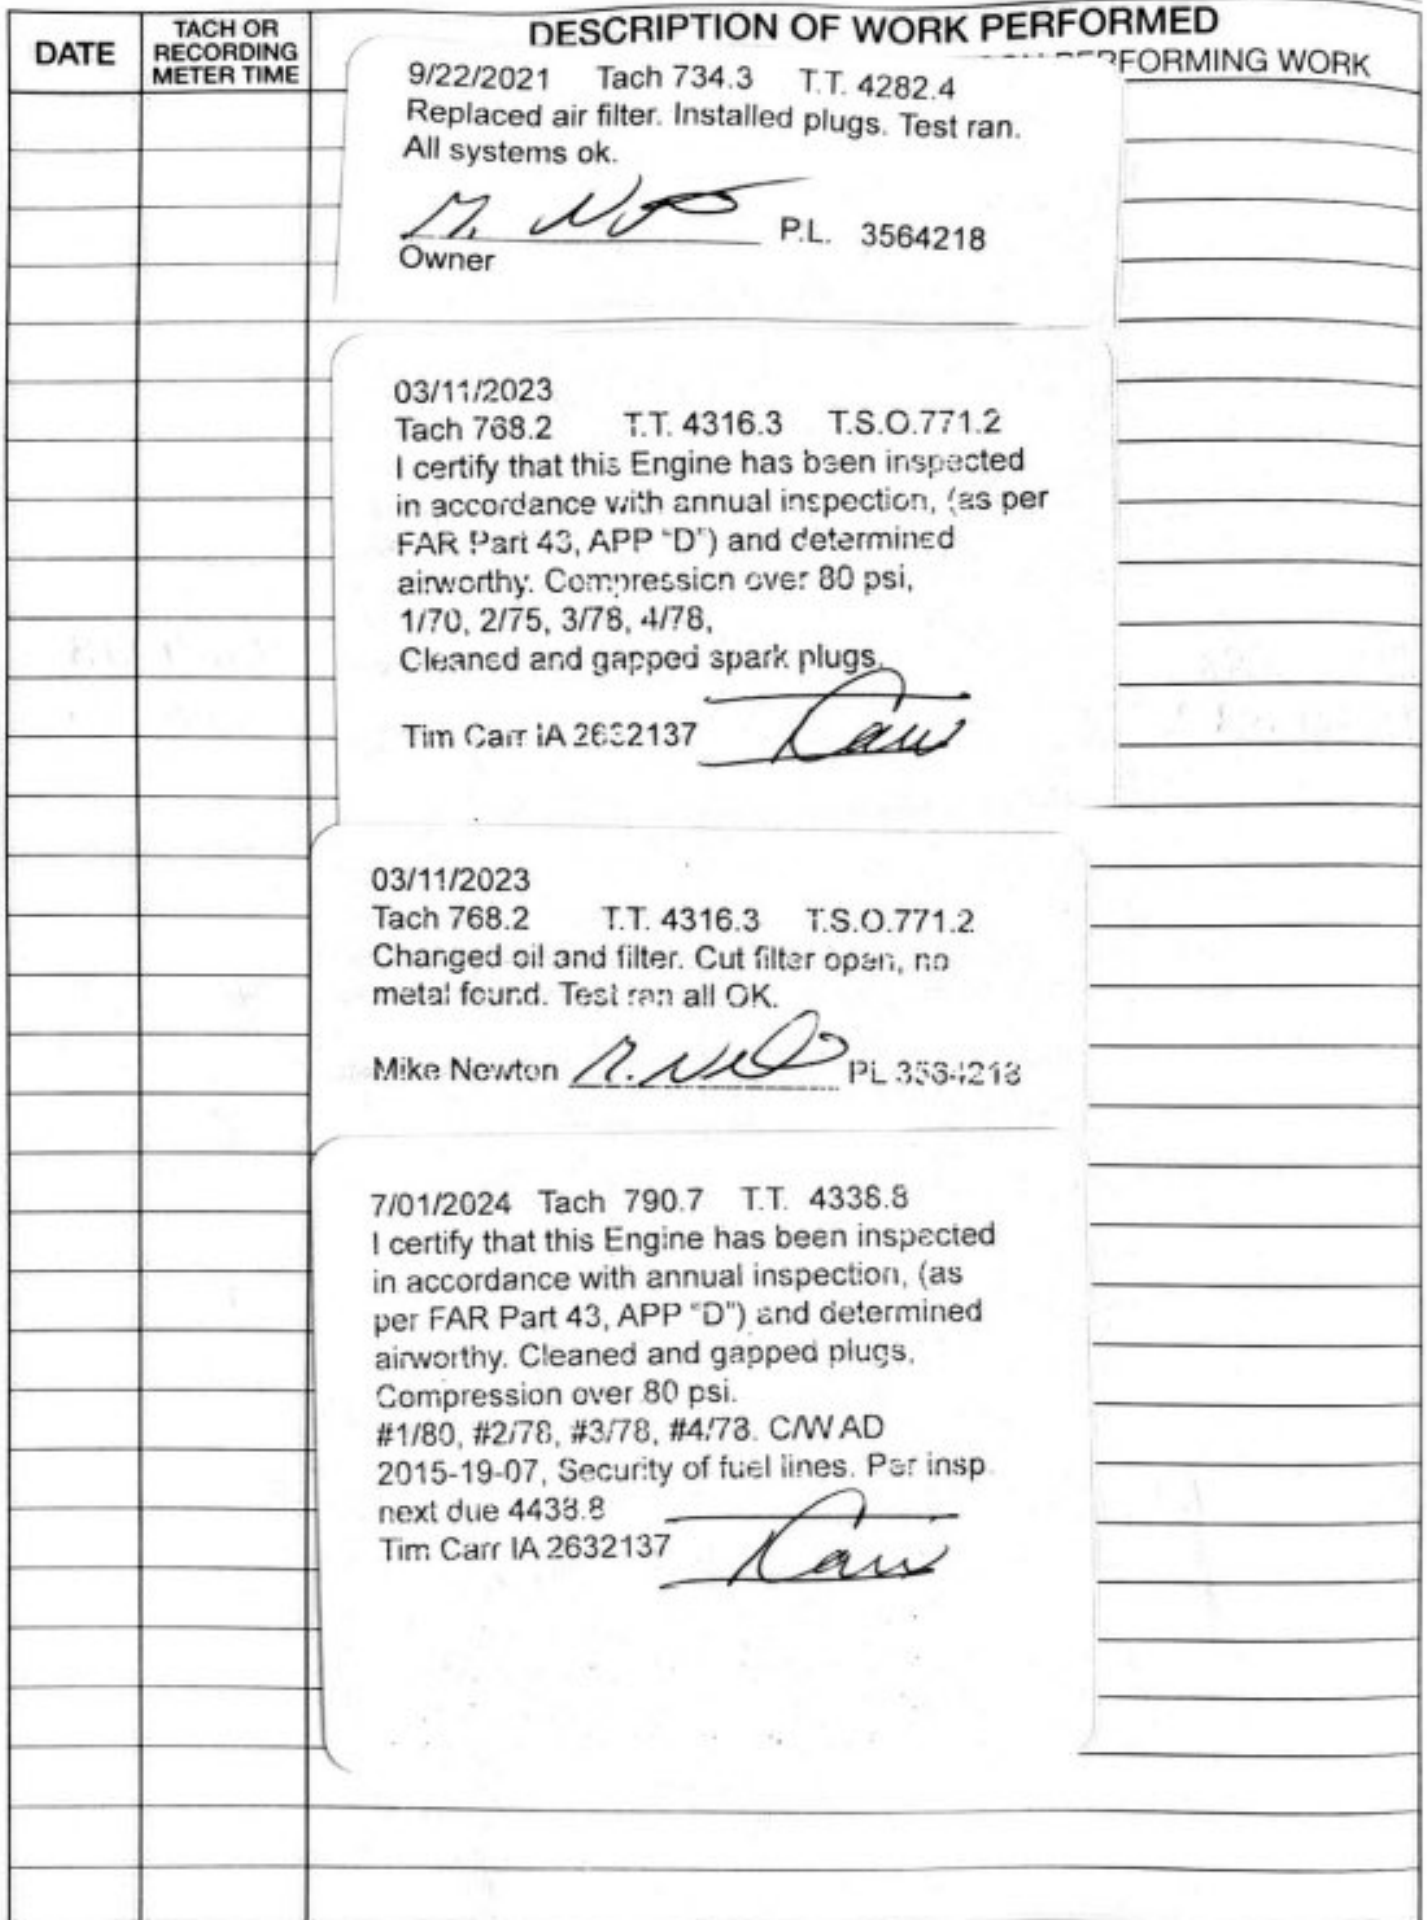 DATE
TACH OR
RECORDING
METER TIME
DESCRIPTION OF WORK PERFORMED
PERFORMING WORK
9/22/2021 Tach 734.3 T.T. 4282.4
Replaced air filter. Installed plugs. Test ran.
All systems ok.
P.L. 3564218
Owner
03/11/2023
Tach 768.2 T.T. 4316.3 T.S.O.771.2
I certify that this Engine has been inspected
in accordance with annual inspection, (as per
FAR Part 43, APP "D") and determined
airworthy. Compression over 80 psi,
1/70, 2/75, 3/78, 4/78,
Cleaned and gapped spark plugs.
Tim Carr IA 2632137
Carr
03/11/2023
Tach 768.2 T.T. 4316.3 T.S.O.771.2
Changed oil and filter. Cut filter open, no
metal found. Test ran all OK.
Mike Newton PL 3564218
7/01/2024 Tach 790.7 T.T. 4338.8
I certify that this Engine has been inspected
in accordance with annual inspection, (as
per FAR Part 43, APP "D") and determined
airworthy. Cleaned and gapped plugs.
Compression over 80 psi.
#1/80, #2/78, #3/78, #4/78. C/W AD
2015-19-07, Security of fuel lines. Per insp.
next due 4438.8
Tim Carr IA 2632137
Carr